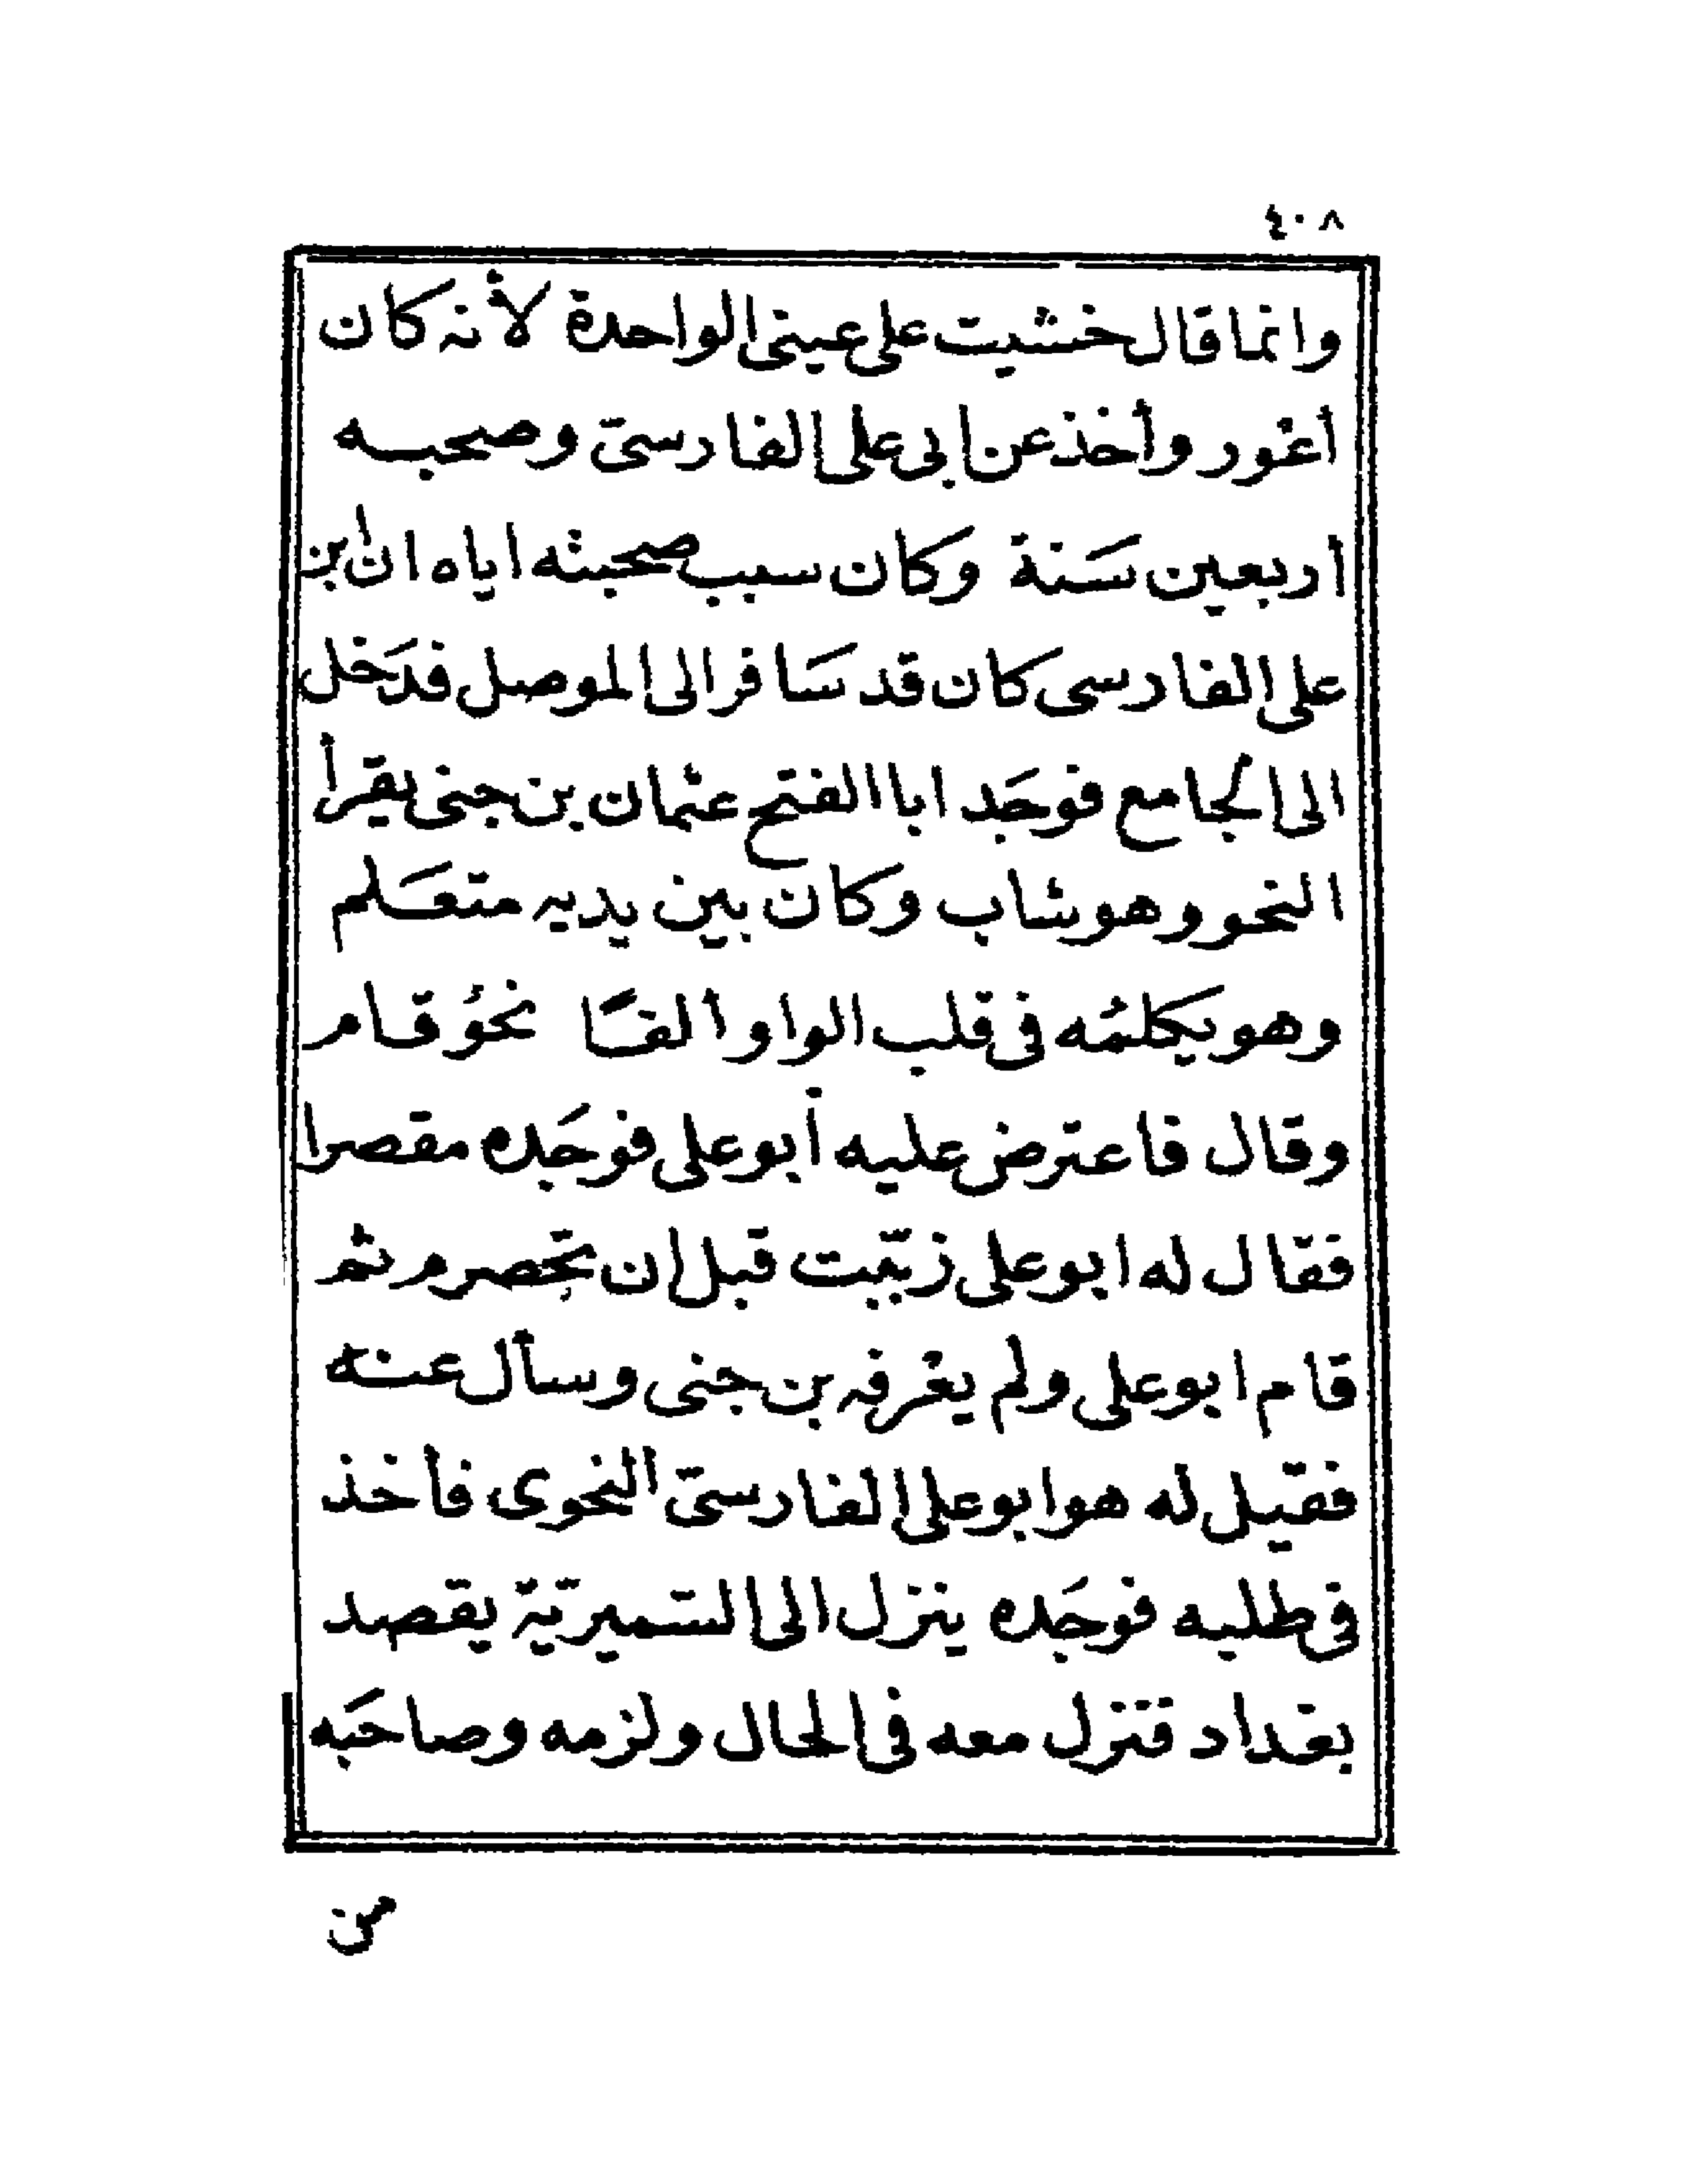 ٤٠٨
وانما قال خشيت على عينى الواحدة لأنه كان
أغور وأخذ عن ابى على الفارسىّ وصحبه
اربعين سَنة وكان سبب صحبته اياه ان ابن
على الفارسى كان قد سَافر الى الموصل فدَخل
الى الجامع فوجَد ابا الفتح عثمان بن جنى يقرأ
النحو وهو شاب وكان بين يديه متعَلم
وهو يكلمُه فى قلب الواو الفًا نحوُ قام
وقال فاعترض عليه أبو على فوجَده مقصرا
فقال له ابو على زبّبت قبل ان تحصرم ثم
قام ابو على ولم يعْرفه بن جنى وسأل عنه
فقيل له هو ابو على الفارسىّ النحوى فأخذ
فى طلبه فوجَده ينزل الى السّميريّة يقصد
بغداد فنزل معه فى الحال ولزمه وصاحبَه
من